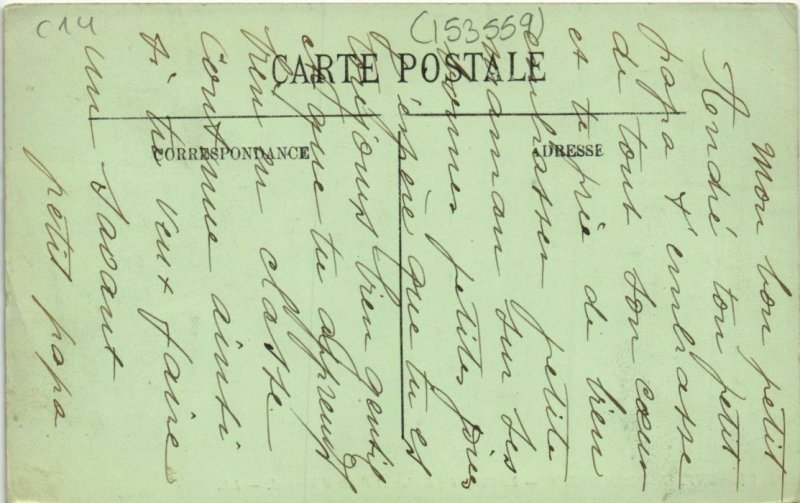 C14
(153559)
CARTE POSTALE
CORRESPONDANCE
ADRESSE
Mon bon petit
André ton petit
papa t'embrasse
de tout son cœur
et te prie de bien
embrasser petite
maman sur ses
bonnes petites joues
j'espère que tu es
toujours bien gentil
et que tu apprends
bien en classe.
Continue ainsi
si tu veux faire
un savant
petit papa